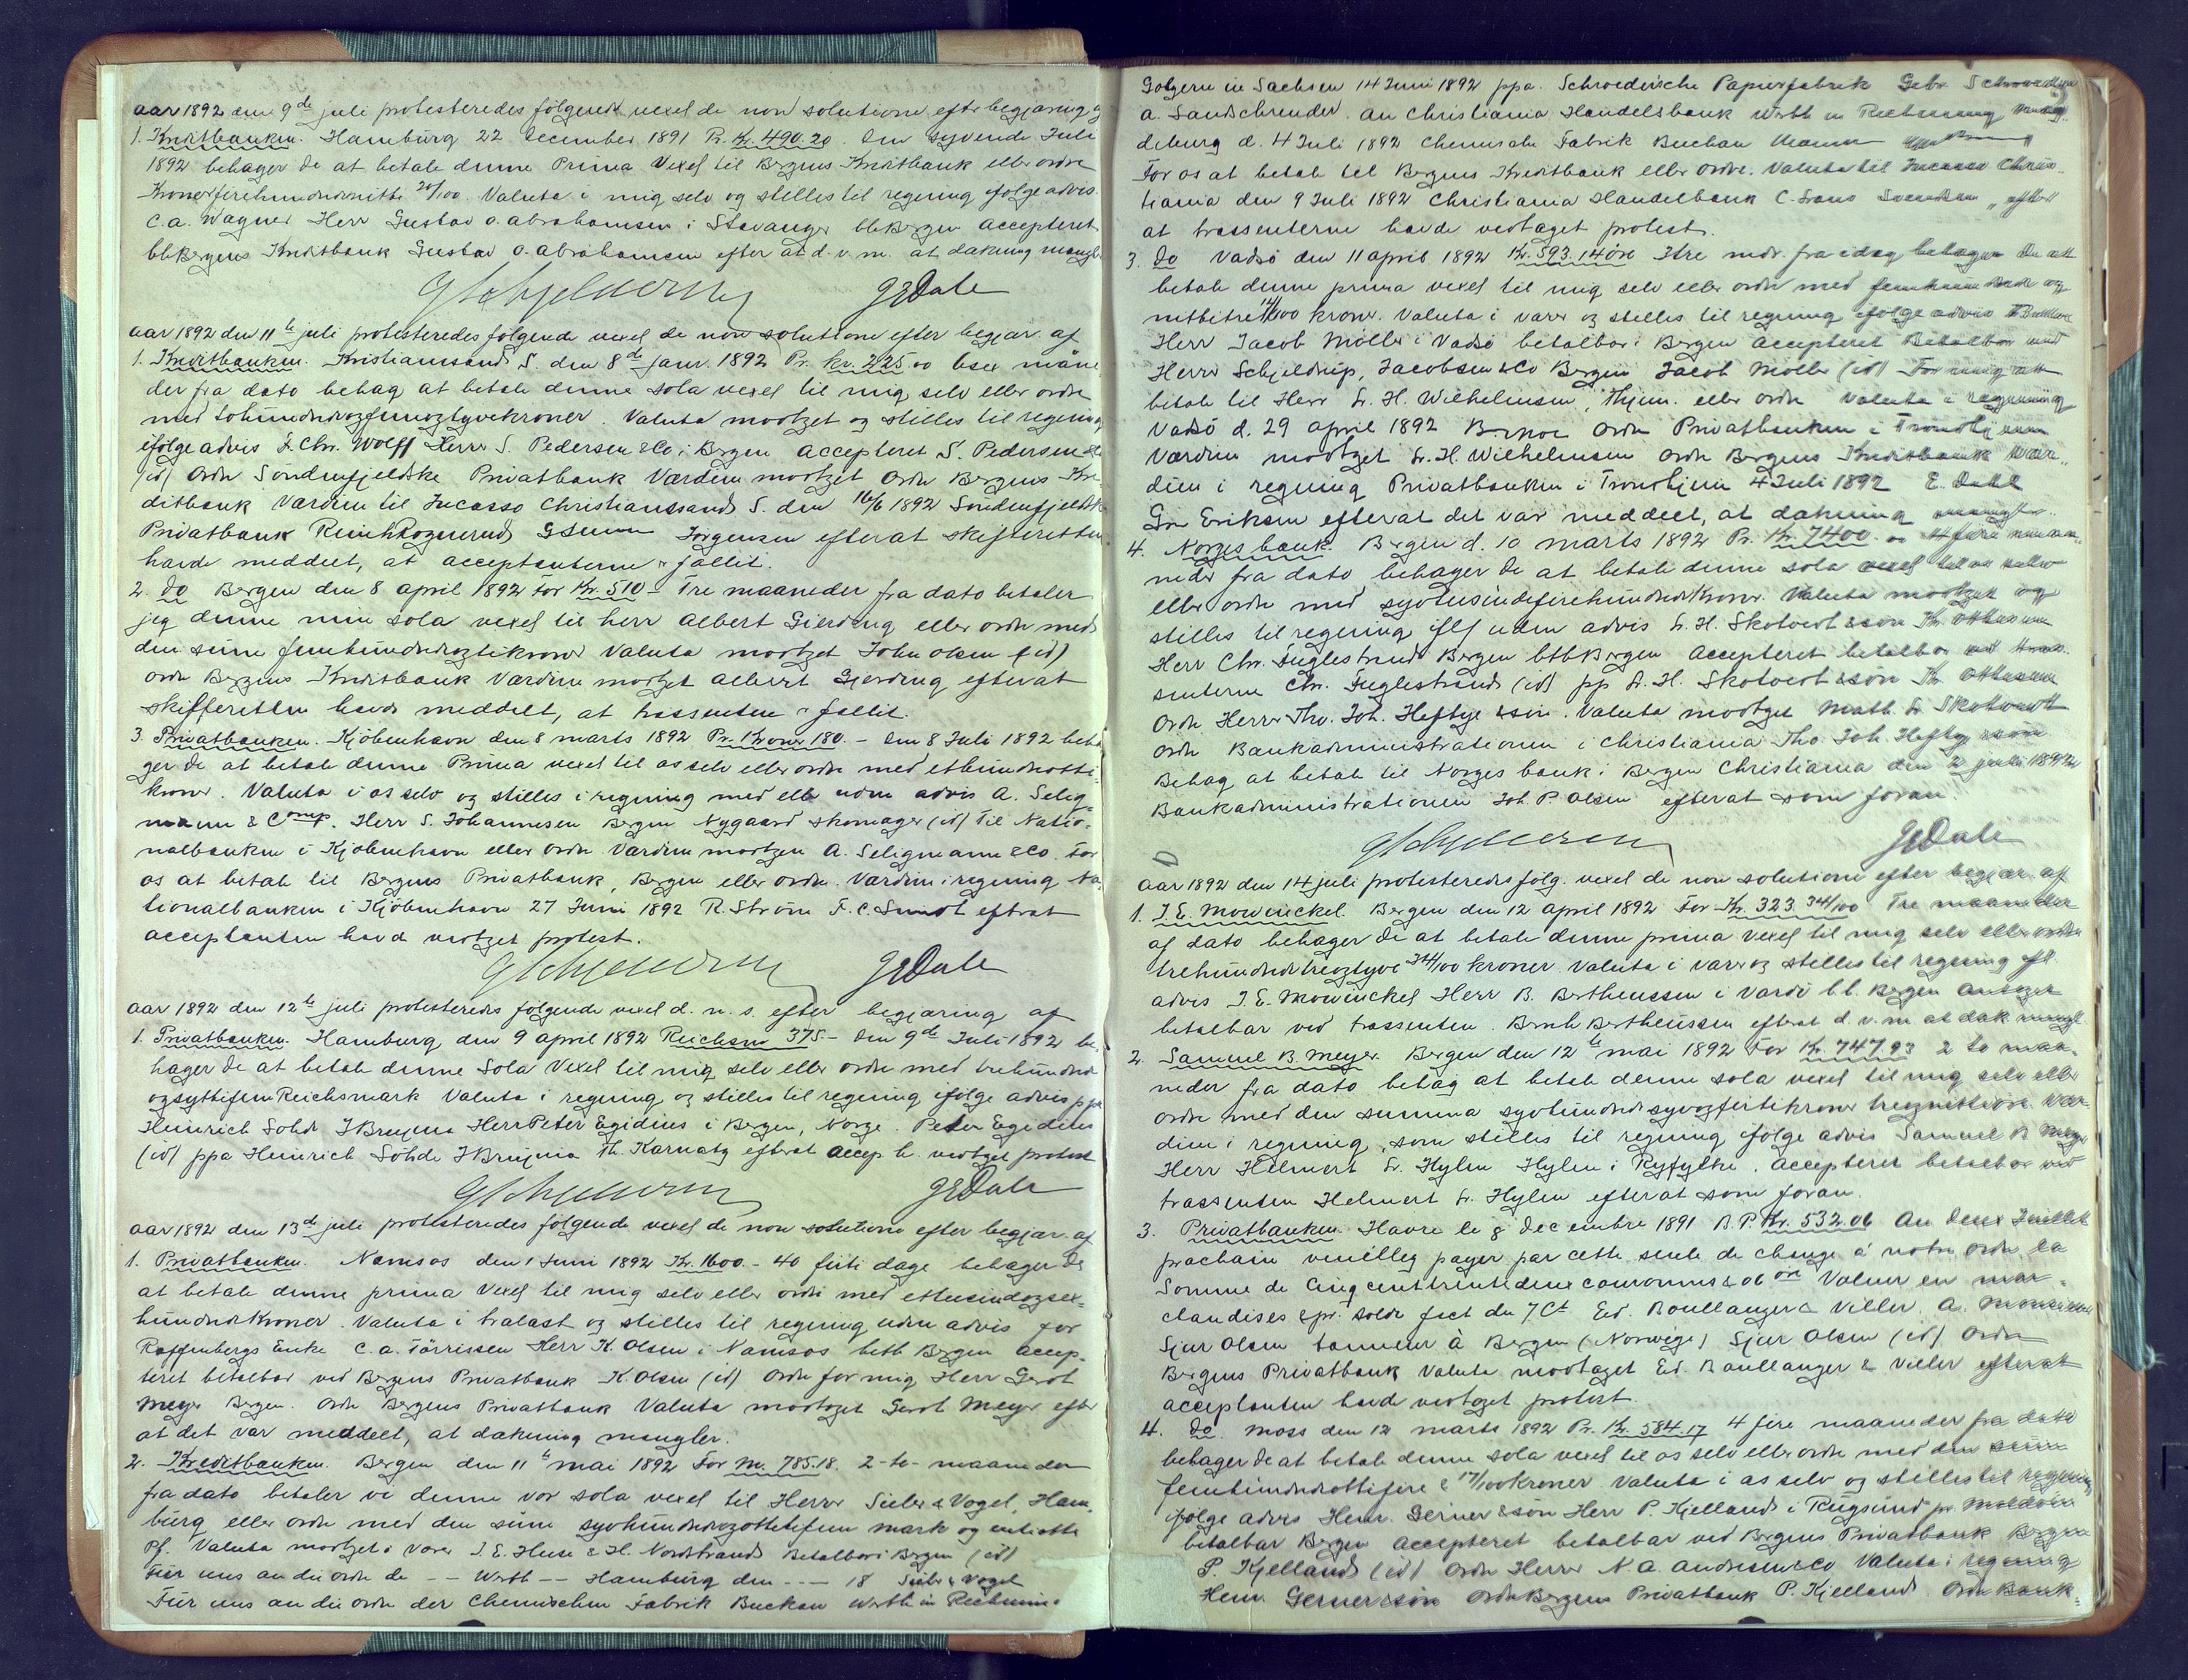 aar 1892 den 9de juli protesteredes følgende vexel de non solutione efter begjæring
1. Kreditbanken. Hamburg 22 December 1891 Pr. Kr. 490.20. Den syvende Juli
1892 behager De at betale denne Prima Vexel til Bergens Kreditbank eller ordre
Kroner firehundrednitti 20/100. Valuta i mig selv og stilles til regning ifølge advis.
C.A. Wagner Herr Gustav O. Abrahamsen i Stavanger btbBergen accepteret
btbBergens Kreditbank Gustav O. Abrahamsen efter at d.v.m. at dækning mangl
GEDale
aar 1892 den 11te juli protesteredes følgende vexel de non solutione efter begjær. af
1. Kreditbanken. Kristianssand S. den 8de janr. 1892 Pr. kr. 225.00 6sex måne
der fra dato behag at betale denne sola vexel til mig selv eller ordre
med tohundredogfemogtyvekroner. Valuta modtget og stilles til regning
ifølge advis F. Chr. Wolff Herrer S. Pedersen & Co i Bergen accepteret S. Pedersen & Co
(id) Ordre Søndenfjeldske Privatbank Værdien modtget Ordre Bergens Kre
ditbank Værdien til Incasso Christianssand S. den 16/6 1892 Søndenfjeldske
Privatbank Jørgensen efterat skifteretten
havde meddelt, at acceptanterne r fallit.
2. do Bergen den 8 april 1892 For Kr. 510 - Tre maaneder fra dato betaler
jeg denne min sola vexel til herr Albert Gierding eller ordre med
den sum femhundredogtikroner Valuta modtget John Olsen (id)
ordre Bergens Kreditbank Værdien modtget Albert Gjerding efterat
skifteretten havde meddelt, at trassenten r fallit.
3. Privatbanken. Kjøbenhavn den 8 marts 1892 Pr. Kroner 180. - Den 8 Juli 1892 beha
ger de at betale denne Prima vexel til os selv eller ordre med ethundredotti
kroner. Valuta i os selv og stilles i regning med eller uden advis A. Selig
mann & Comp. Herr S. Johannesen Bergen Nygaard skomager (id) Til Natio-
nalbanken i Kjøbenhavn eller ordre Værdien modtgen A. Seligmann & Co. For
os at betale til Bergens Privatbank, Bergen eller ordre. Værdien i regning Na-
tionalbanken i Kjøbenhavn 27 Juni 1892 R. Strøm F. C. Smidt efterat
acceptanten havde vedtget protest.
GEDale
aar 1892 den 12te juli protesteredes følgende vexel d. n. s. efter begjæring af
1. Privatbanken. Hamburg den 9 april 1892 Reichsm 375.- Den 9de Juli 1892 be-
hager de at betale denne Sola Vexel til mig selv eller ordre med trehundred
ogsyttifem Reichsmark Valuta i regning og stilles til regning ifølge advis ppa
Heinrich Sohde Herr Peter Egidius i Bergen, Norge. Peter Egidius
(id) ppa Heinrich Söhde Th. Karnatz efterat accep h. vedtget protest
GEDale
aar 1892 den 13de juli protesteredes følgende vexel de non solutione efter begjær. af
1. Privatbanken. Namsos den 1 Juni 1892 Kr. 1600.- 40 firti dage behager De
at betale denne prima Vexel til mig selv eller ordre med ettusindogsex-
hundredkroner. Valuta i tralast og stilles til regning uden advis for
Enke C.A. Tørrissen Herr K. Olsen i Namsos betb Bergen accep-
teret betalbar ved Bergens Privatbank K Olsen (id) Ordre for mig Herr Gerdt
Meyer Bergen. Ordre Bergens Privatbank Valuta modtaget Gerdt Meyer efter
at det var meddelt, at dækning mangler.
2. Kreditbanken. Bergen den 11te mai 1892 For M. 785.18. 2 - to - maaneder
fra dato betaler vi denne vor sola vexel til Herrer Sieler & Vogel, Ham-
burg eller ordre med den sum syvhundredogottetifem mark og enti otte
Pf. Valuta modtget i varer I. E. Huse & H. Nordstrand Betalbar i Bergen (id)
Für uns an die ordre de - - Werth - - Hamburg den - - - 18 Sieler & Vogel
Für uns an die Ordre der Chemischen Fabrik Buckau Werth in Rechnung
Golzern in Sachsen 14 Juni 1892 ppa. Schroedersche Papierfabrik Gebr. Schroeder
A. Landschreuder. An Christiania Handelsbank Werth in Rechnung Magde-
deburg d. 4 Juli 1892 Chemische Fabrik Buckau
For os at betale til Bergens Kreditbank eller ordre. Valuta til Incasso Chris-
tiania den 9 Juli 1892 Christiania Handelbank C. Svendsen efter
at trassenterne havde vedtaget protest.
3. do Vadsø den 11 april 1892 Kr. 593.14øre 3tre mdr. fra idag behager De at
betale denne prima vexel til mig selv eller ordre med femhundrede og
nittitre 14/100 kroner. Valuta i varer og stilles til regning ifølge advis
Herr Jacob Møller i Vadsø betalbar i Bergen accepteret Betalbar ved
Herrer Schjelderup, Jacobsen & Co Bergen Jacob Møller (id) For mig at
betale til Herr L. H. Wilhelmsen, Thjem. eller ordre Valuta i regning
Vadsø d. 29 april 1892 B. Moe Ordre Privatbanken i Trondhjem
Værdien modtget L. H. Wilhelmsen Ordre Bergens Kreditbank Vær-
dien i regning Privatbanken i Trondhjem 4 Juli 1892 E. Dahl
Eriksen efterat det var meddeelt, at dækning mangler.
4. Norges bank. Bergen d. 10 marts 1892 Pr. Kr. 7400.00 4 fire maa-
neder fra dato behager De at betale denne sola vexel til os selv
eller ordre med syvtusindefirehundredkroner. Valuta modtget og
stilles til regning iflg uden advis L. H. Skotvedt & søn Th. Ottesen
Herr Chr. Fuglestrand Bergen btbBergen Accepteret betalbar ved tras-
senterne Chr. Fuglestrand (id) pp L. H. Skotvedt & søn Th. Ottesen
Ordre Herrer Tho. Joh. Heftye & søn. Valuta modtget Math. L. Skotvedt
ordre Bankadministrationen i Christiania Tho. Joh. Heftye & søn
Behag at betale til Norges bank i Bergen Christiania den 2 juli 1892
Bankadministrationen Joh. P. Olsen efterat som foran.
GEDale
aar 1892 den 14 juli protesteredes følg. vexel de non solutione efter begjær. af
1. J. E. Mowinckel. Bergen den 12 april 1892 For Kr. 323.34/100 Tre maaneder
af dato behager De at betale denne prima vexel til mig selv eller ordre
trehundredtreogtyve 34/100 kroner. Valuta i varer og stilles til regning ifl
advis J. E. Mowinckel Herr B. Bertheussen i Vardø b.b. Bergen antaget
betalbar ved trassenten. Brnh Bertheussen efterat d. v. m. at dæk. mangl
2. Samuel B. Meyer. Bergen den 12te mai 1892 For Kr. 747.93 2 to maa-
neder fra dato behag at betale denne sola vexel til mig selv eller
ordre med den summa syvhundredsyvogfirtikroner treognittiøre. Vær-
dien i regning, som stilles til regning ifølge advis Samuel B Meyer
Herr Helmert L. Hylen Hylen i Ryfylke. Accepteret betalbar ved
trassenten Helmert L. Hylen efterat som foran.
3. Privatbanken. Havre le 8 Decembre 1891 B.P. Kr. 532.06 Au deux Juillet
prochain veuillez payer par cette seule de change à notre ordre la
Somme de Cinq centtrentedeux couronnes & 06 öre Valeur en mar-
chandises & pr. solde fact du 7 Ct Ed. Boullanger & Viller. A. Monsieur
Sjur Olsen tanneur à Bergen (Norwège) Sjur Olsen (id) Ordre
Bergens Privatbank Valuta modtaget Ed. Boullanger & Viller efterat
acceptanten havde vedtaget protest.
4. do. Moss den 12 marts 1892 Pr. Kr. 584.17 4 fire maaneder fra dato
behager de at betale denne sola vexel til os selv eller ordre med den sum
femhundredottifire & 17/100 kroner. Valuta i os selv og stilles til regning
ifølge advis Henr. Gerner & søn Herr P. Kjelland i Rugsund pr. Moldøen
betalbar Bergen accepteret betalbar ved Bergens Privatbank Bergen
P. Kjelland (id) Ordre Herrer N. A. Andresen & Co Valuta i regning
Henr. Gerner & søn Ordre Bergens Privatbank P. Kjelland. Ordre Bank-